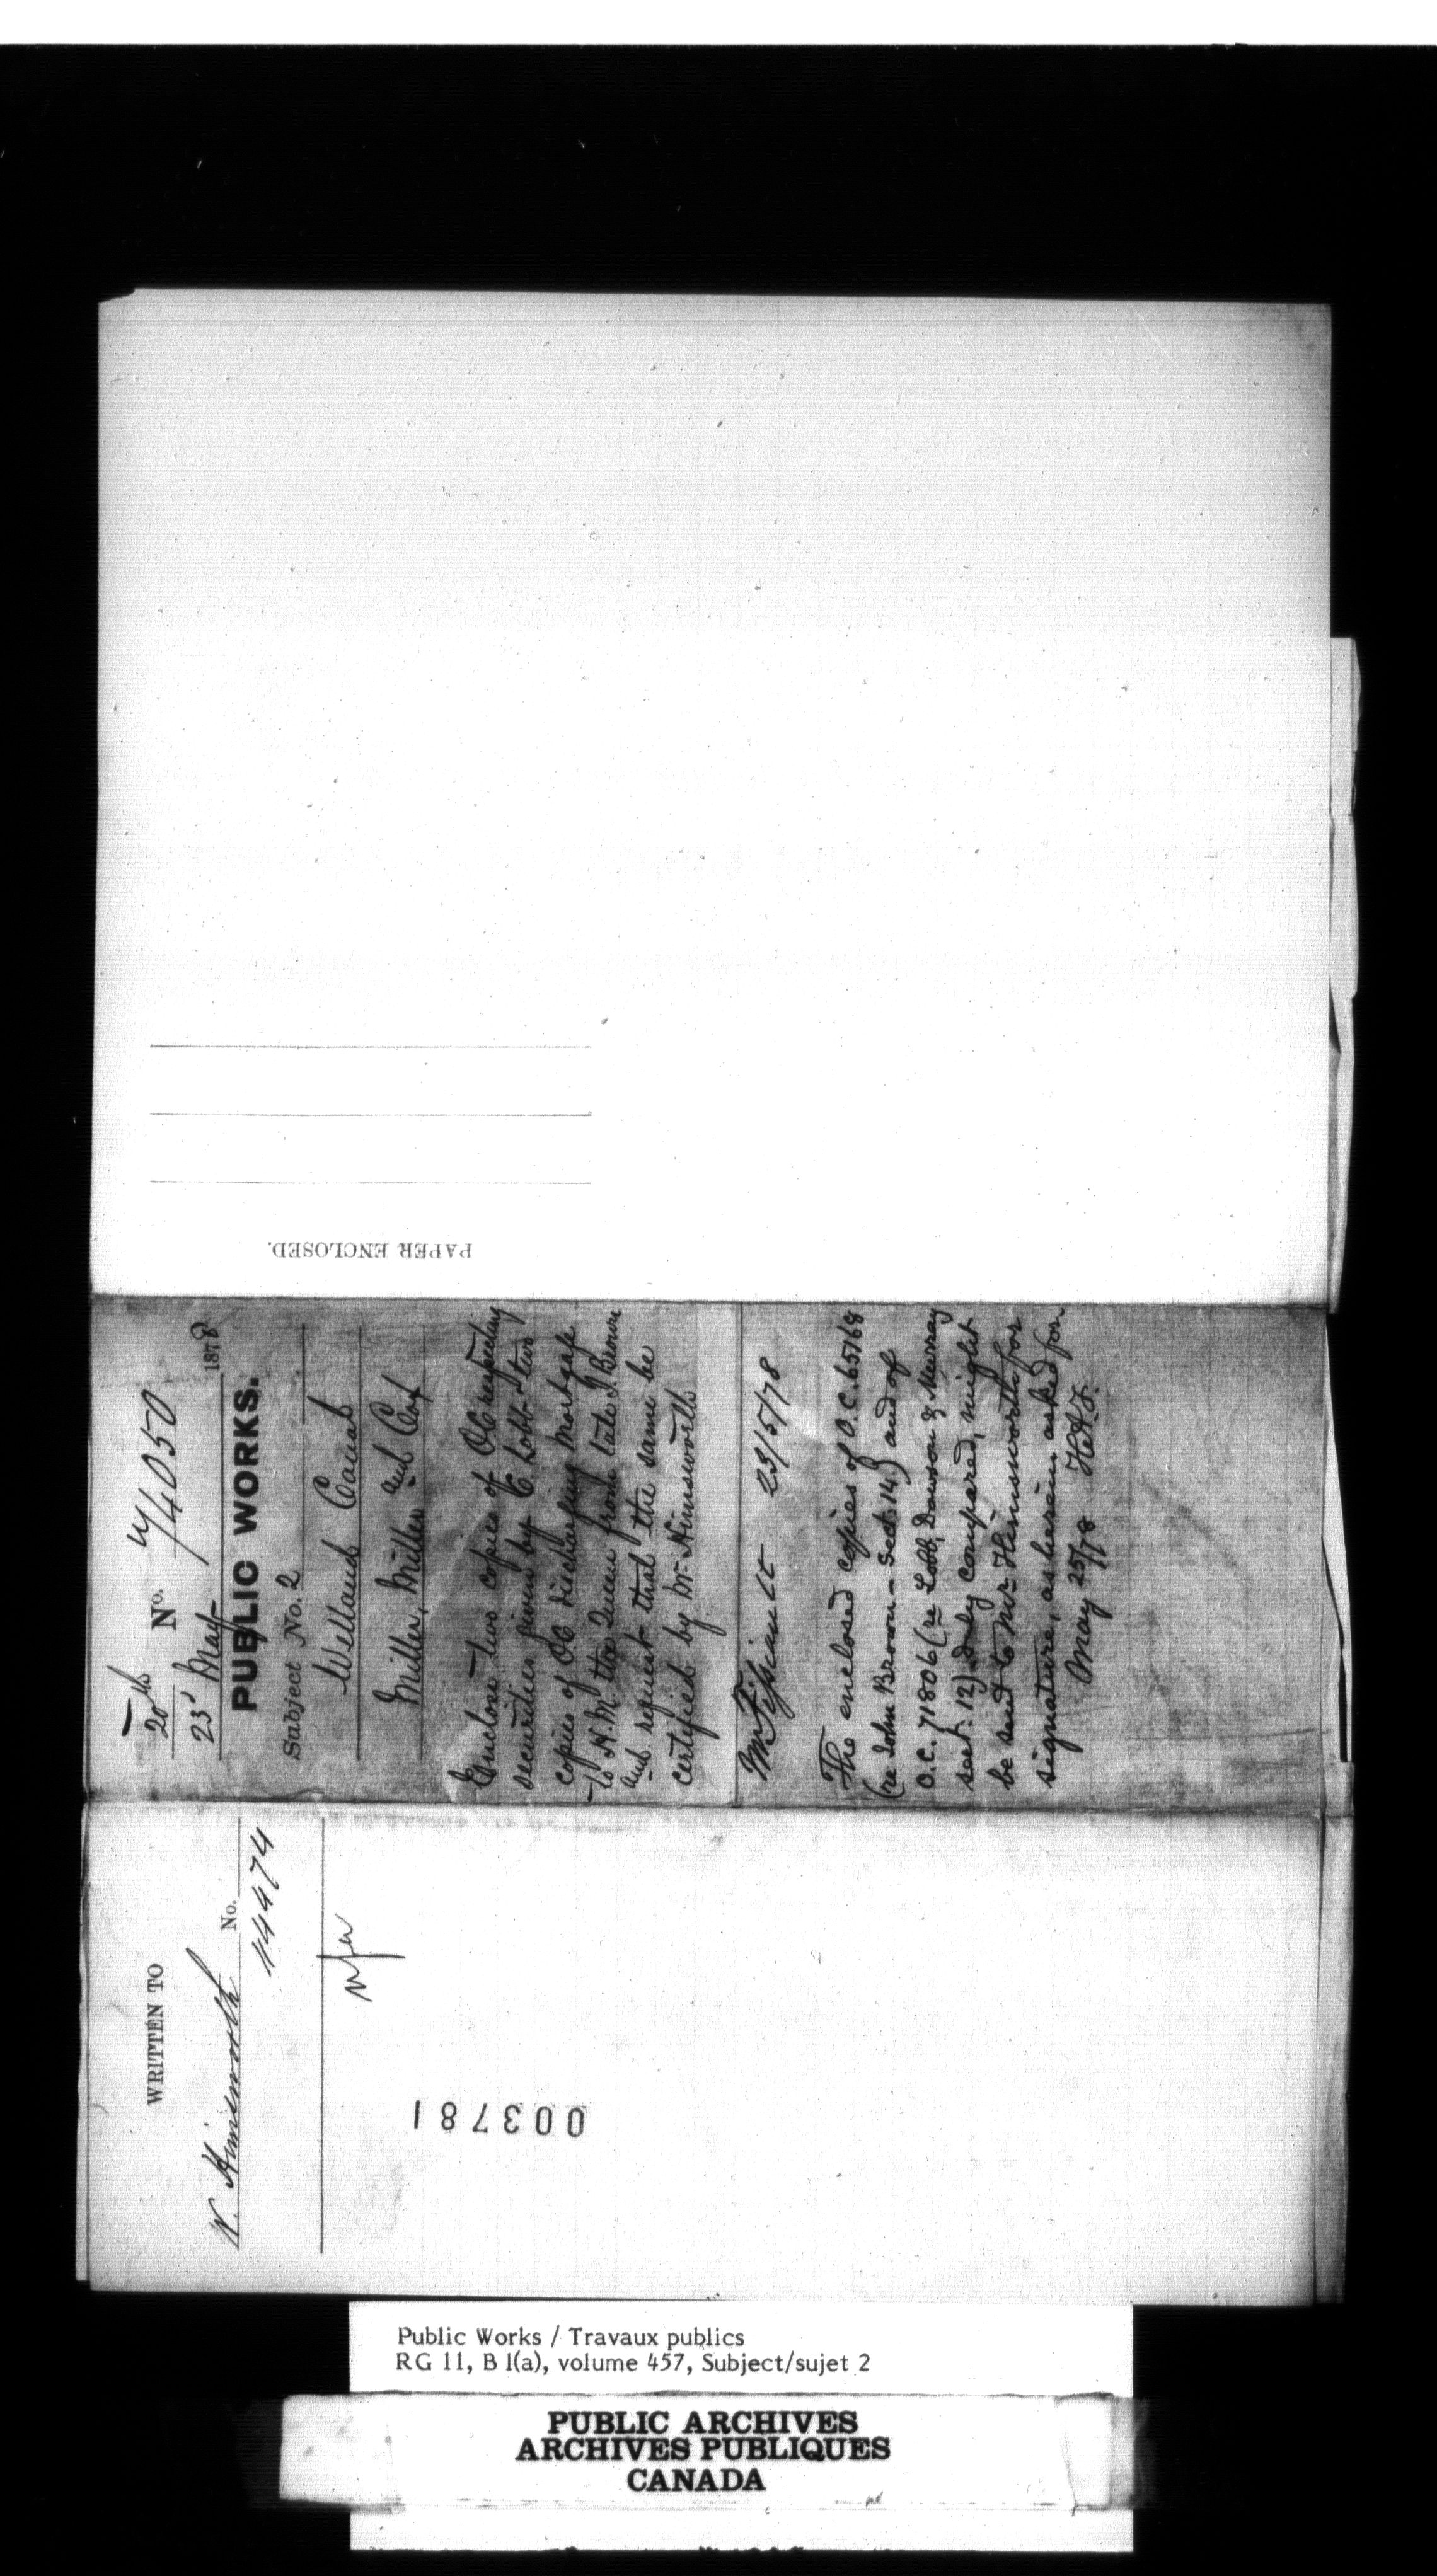 20th
23 May 1878
No. 74050
PUBLIC WORKS.
Subject No. 2
Welland Canal
Miller, Miller and Cox
Enclose two copies of OC respecting
securities given by C. Lobb & two
copies of OC discharging mortgage
to H.M. the Queen from late J Brown
and request that the same be
certified by Mr. Himsworth
23/5/78
The enclosed copies of O.C. 65168
(re John Brown - Sect. 14) and of
O.C. 71806 (re Lobb, Dawson & Murray
sect. 12) duly compared, might
be sent to Mr. Himsworth for
signature, as herein asked for
May 25/78 H.A.F.
WRITTEN TO
W. Himsworth
No. 14474
PAPER ENCLOSED.
003781
Public Works / Travaux publics
RG 11, B 1(a), volume 457, Subject/sujet 2
PUBLIC ARCHIVES
ARCHIVES PUBLIQUES
CANADA